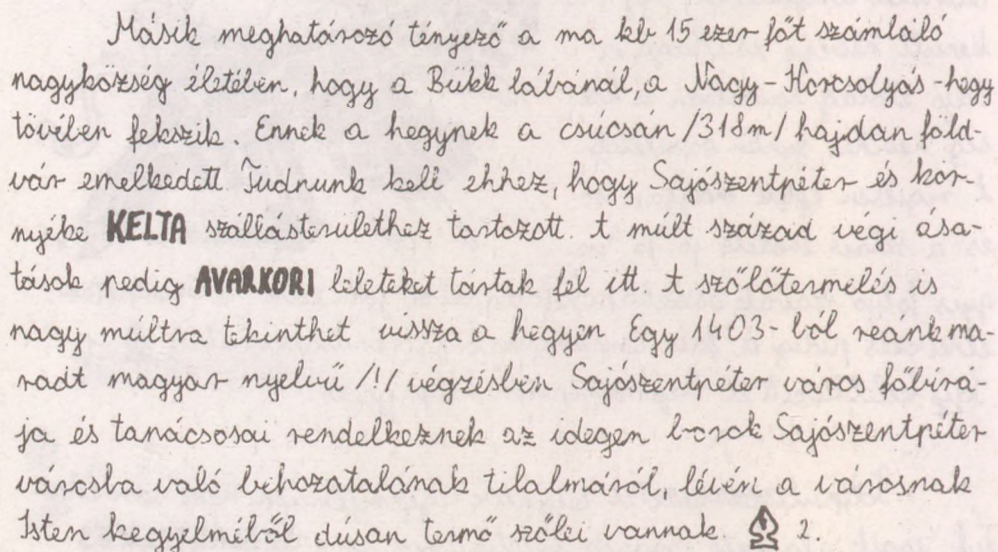 Másik meghatározó tényező a ma kb 15 ezer főt számláló
nagyközség életében, hogy a Bükk lábánál, a Nagy-Korcsolyás-hegy
tövében fekszik. Ennek a hegynek a csúcsán /318m/ hajdan föld-
vár emelkedett. Tudnunk kell ehhez, hogy Sajószentpéter és kör-
nyéke KELTA szállásterülethez tartozott. A múlt század végi ása-
tások pedig AVARKORI leleteket tártak fel itt. A szőlőtermelés is
nagy múltra tekinthet vissza a hegyen Egy 1403-ból reánk ma-
radt magyar nyelvű /!/ végzésben Sajószentpéter város főbírá-
ja és tanácsosai rendelkeznek az idegen borok Sajószentpéter
városba való behozatalának tilalmáról, lévén a városnak
Isten kegyelméből dúsan termő szőlei vannak. 2.